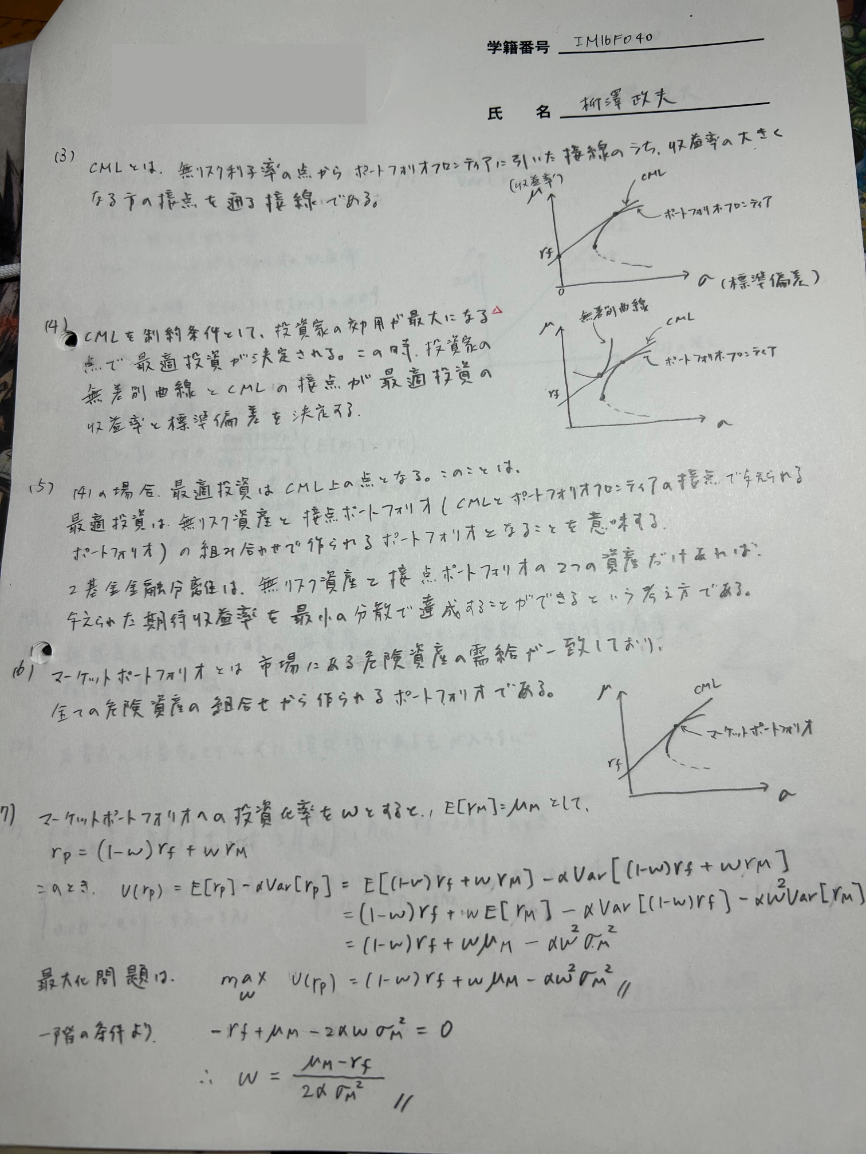 学籍番号 IM16F040
氏 名 柳澤 政夫
(3) CMLとは、無リスク利子率の点からポートフォリオフロンティアに引いた接線のうち、収益率の大きく
なる方の接点を通る接線である。
(収益率)
μ
CML
ポートフォリオフロンティア
rf
0
σ (標準偏差)
(4) CMLを制約条件として、投資家の効用が最大になる
点で最適投資が決定される。この時、投資家の
無差別曲線とCMLの接点が最適投資の
収益率と標準偏差を決定する.
μ
無差別曲線
CML
ポートフォリオフロンティア
rf
σ
(5) (4)の場合、最適投資はCML上の点となる。このことは、
最適投資は、無リスク資産と接点ポートフォリオ(CMLとポートフォリオフロンティアの接点で与えられる
ポートフォリオ)の組み合わせで作られるポートフォリオとなることを意味する.
2基金金融分離は、無リスク資産と接点ポートフォリオの2つの資産だけあれば、
与えられた期待収益率を最小の分散で達成することができるという考え方である。
(6) マーケットポートフォリオとは市場にある危険資産の需給が一致しており、
全ての危険資産の組合せから作られるポートフォリオである。
μ
CML
マーケットポートフォリオ
rf
σ
7) マーケットポートフォリオへの投資比率をwとすると、E[rM]=μMとして、
rp=(1-w)rf+wrM
このとき、U(rp)=E[rp]-αVar[rp]=E[(1-w)rf+wrM]-αVar[(1-w)rf+wrM]
=(1-w)rf+wE[rM]-αVar[(1-w)rf]-αw²Var[rM]
=(1-w)rf+wμM-αw²σM²
最大化問題は、 max w U(rp)=(1-w)rf+wμM-αw²σM² //
一階の条件より、 -rf+μM-2αwσM²=0
∴ w = (μM-rf)/(2ασM²) //